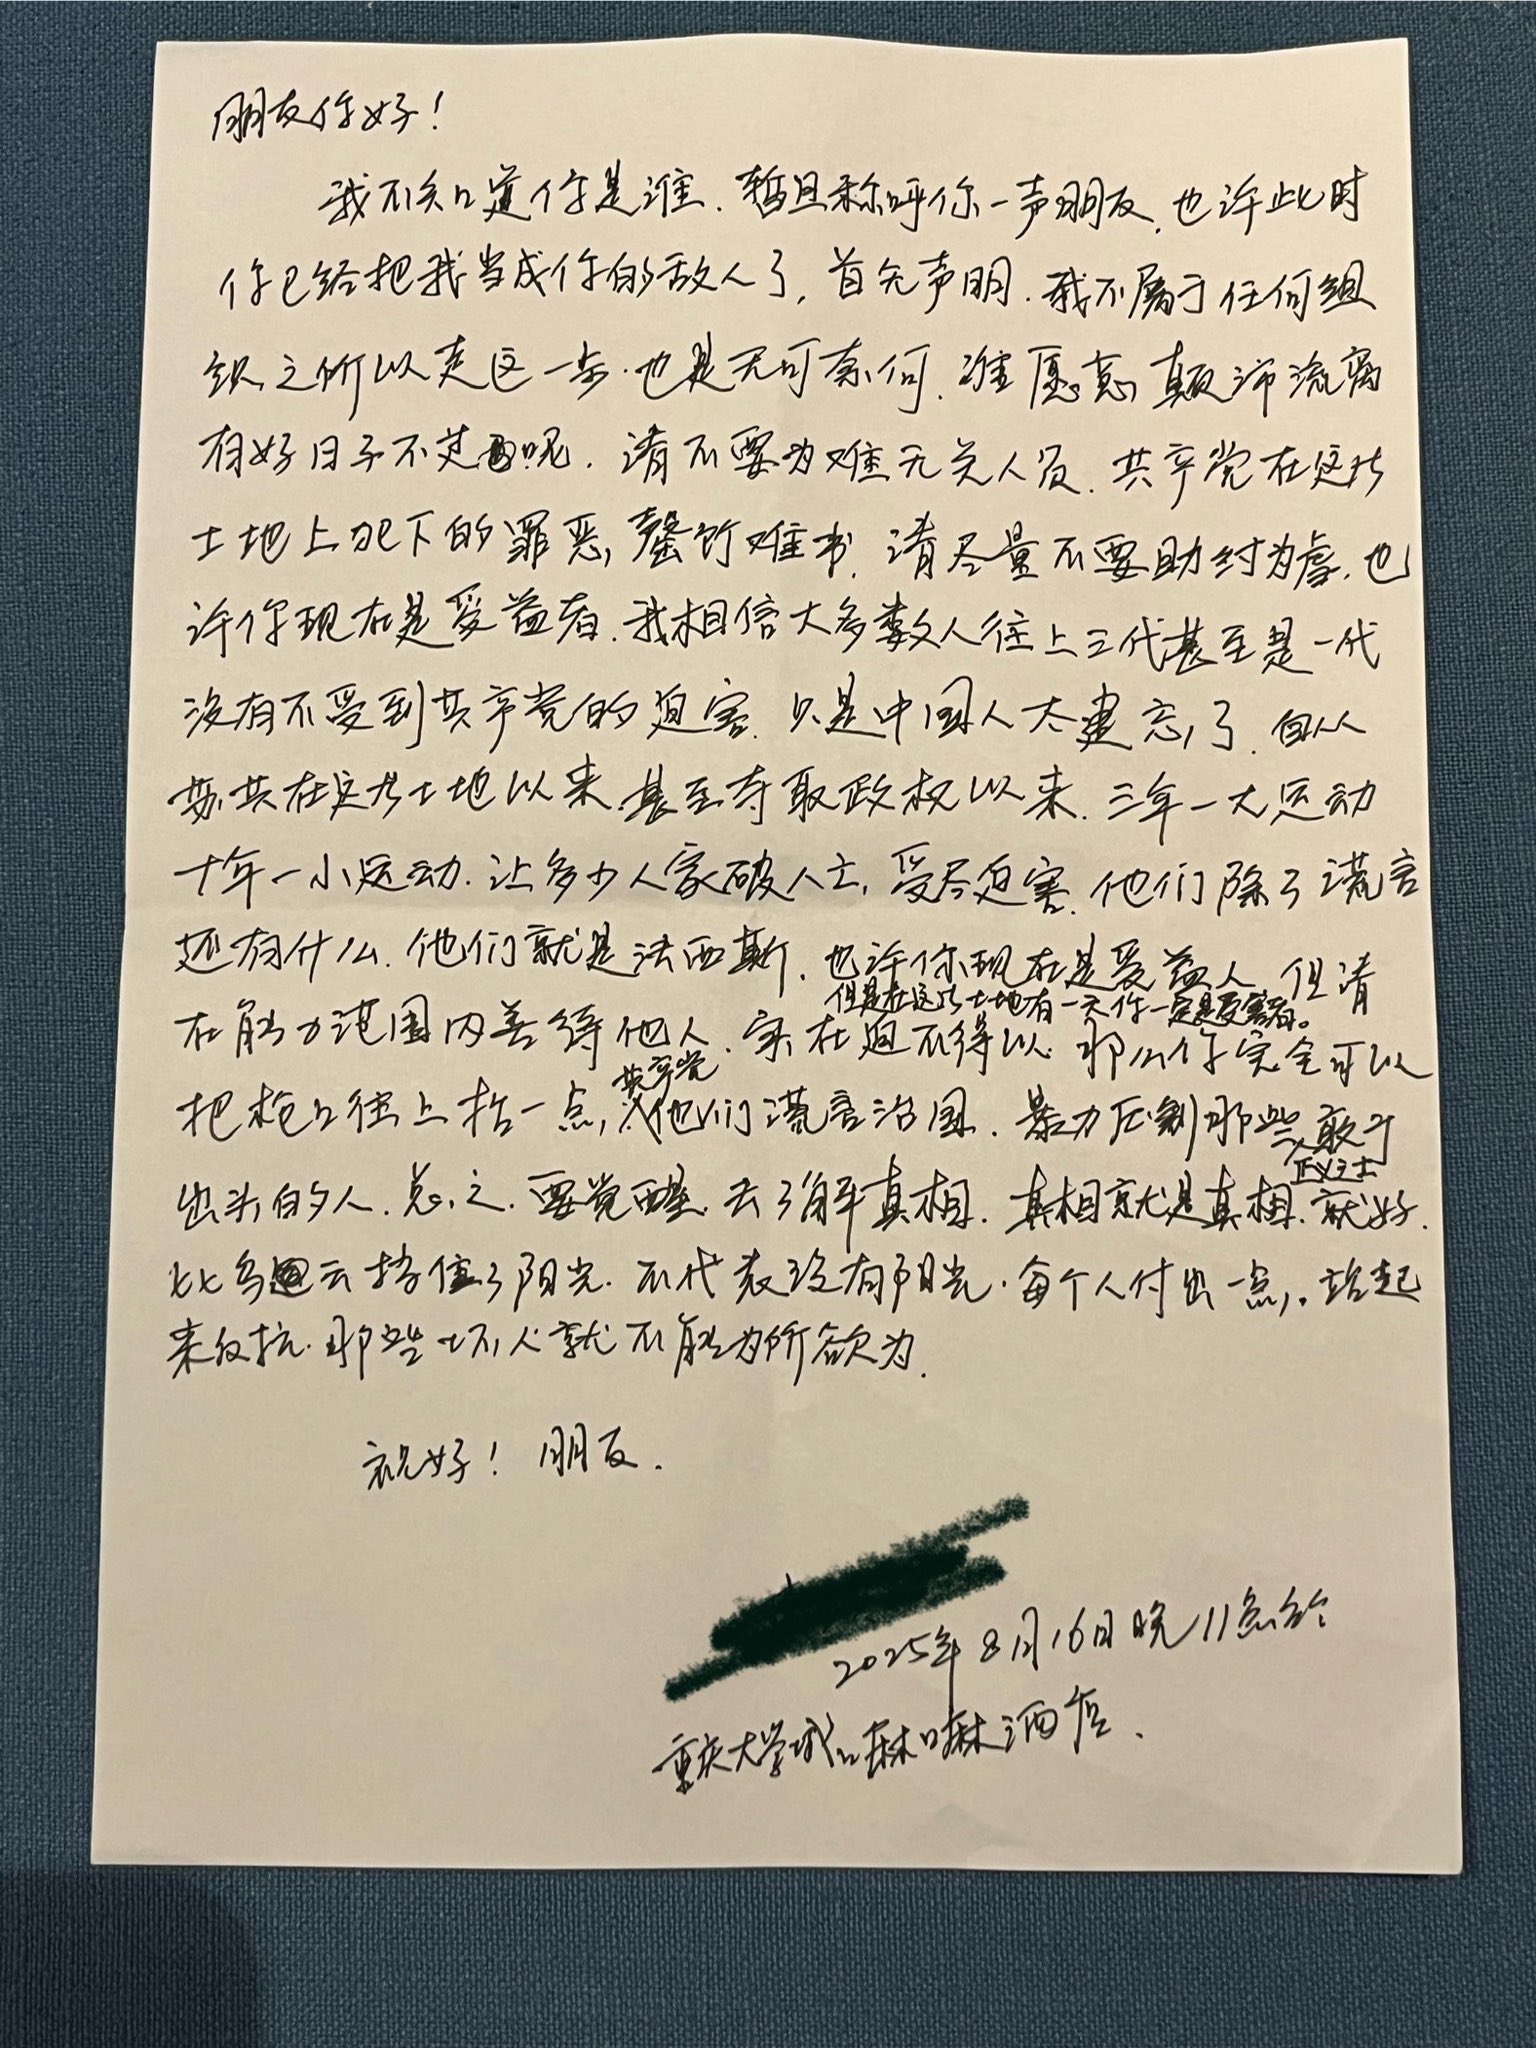 朋友你好！
我不知道你是谁.暂且称呼你一声朋友.也许此时
你已给把我当成你的敌人了.首先声明.我不属于任何组
织.之所以走这一步.也是无可奈何.谁愿意颠沛流离
有好日子不过呢.请不要为难无关人员.共产党在这片
土地上犯下的罪恶,罄竹难书.请尽量不要助纣为虐.也
许你现在是受益者.我相信大多数人往上三代甚至是一代
没有不受到共产党的迫害.只是中国人太健忘了.自从
苏共在这片土地以来.甚至夺取政权以来.三年一大运动
十年一小运动.让多少人家破人亡,受尽迫害.他们除了谎言
还有什么.他们就是法西斯.也许你现在是受益人 但请
但是在这片土地有一天你一定是受害者。
在能力范围内善待他人.实在迫不得以.那么你完全可以
共产党
把枪口往上抬一点,他们谎言治国.暴力压制那些敢于
正义之士
出头的人.总之.要觉醒.去了解真相.真相就是真相.就好.
比乌云挡住了阳光.不代表没有阳光.每个人付出一点,.站起
来反抗.那些坏人就不能为所欲为.
祝好！朋友.
2025年8月16日晚11点于
重庆大学城口麻口麻酒店.